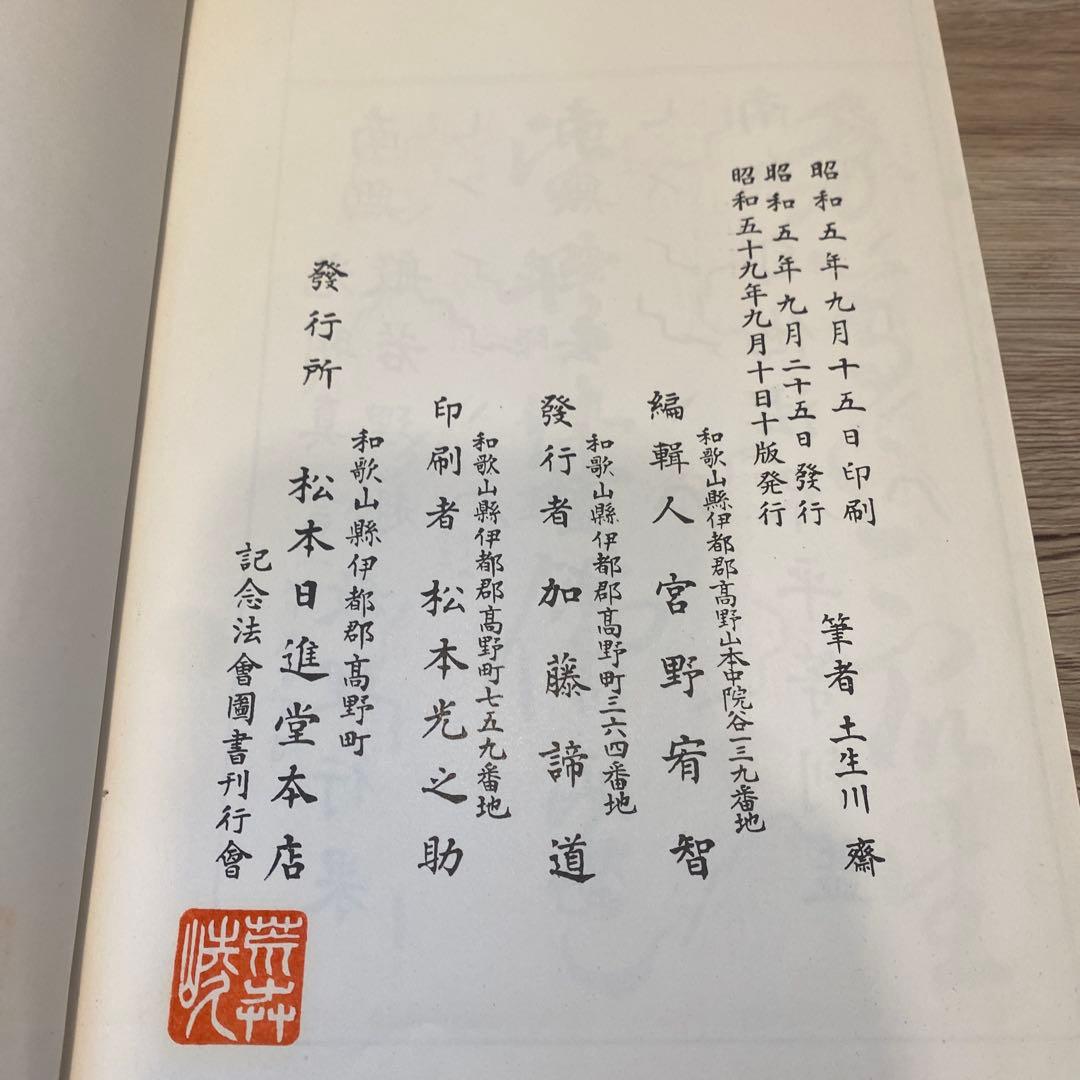 昭和五年九月十五日印刷
昭和五年九月二十五日發行
昭和五十九年九月十日十版発行
筆者 土生川 齋
和歌山縣伊都郡高野山本中院谷一三九番地
編輯人 宮野宥智
和歌山縣伊都郡高野町三六四番地
發行者 加藤諦道
和歌山縣伊都郡高野町七五九番地
印刷者 松本光之助
發行所
和歌山縣伊都郡高野町
松本日進堂本店
記念法會圖書刊行會